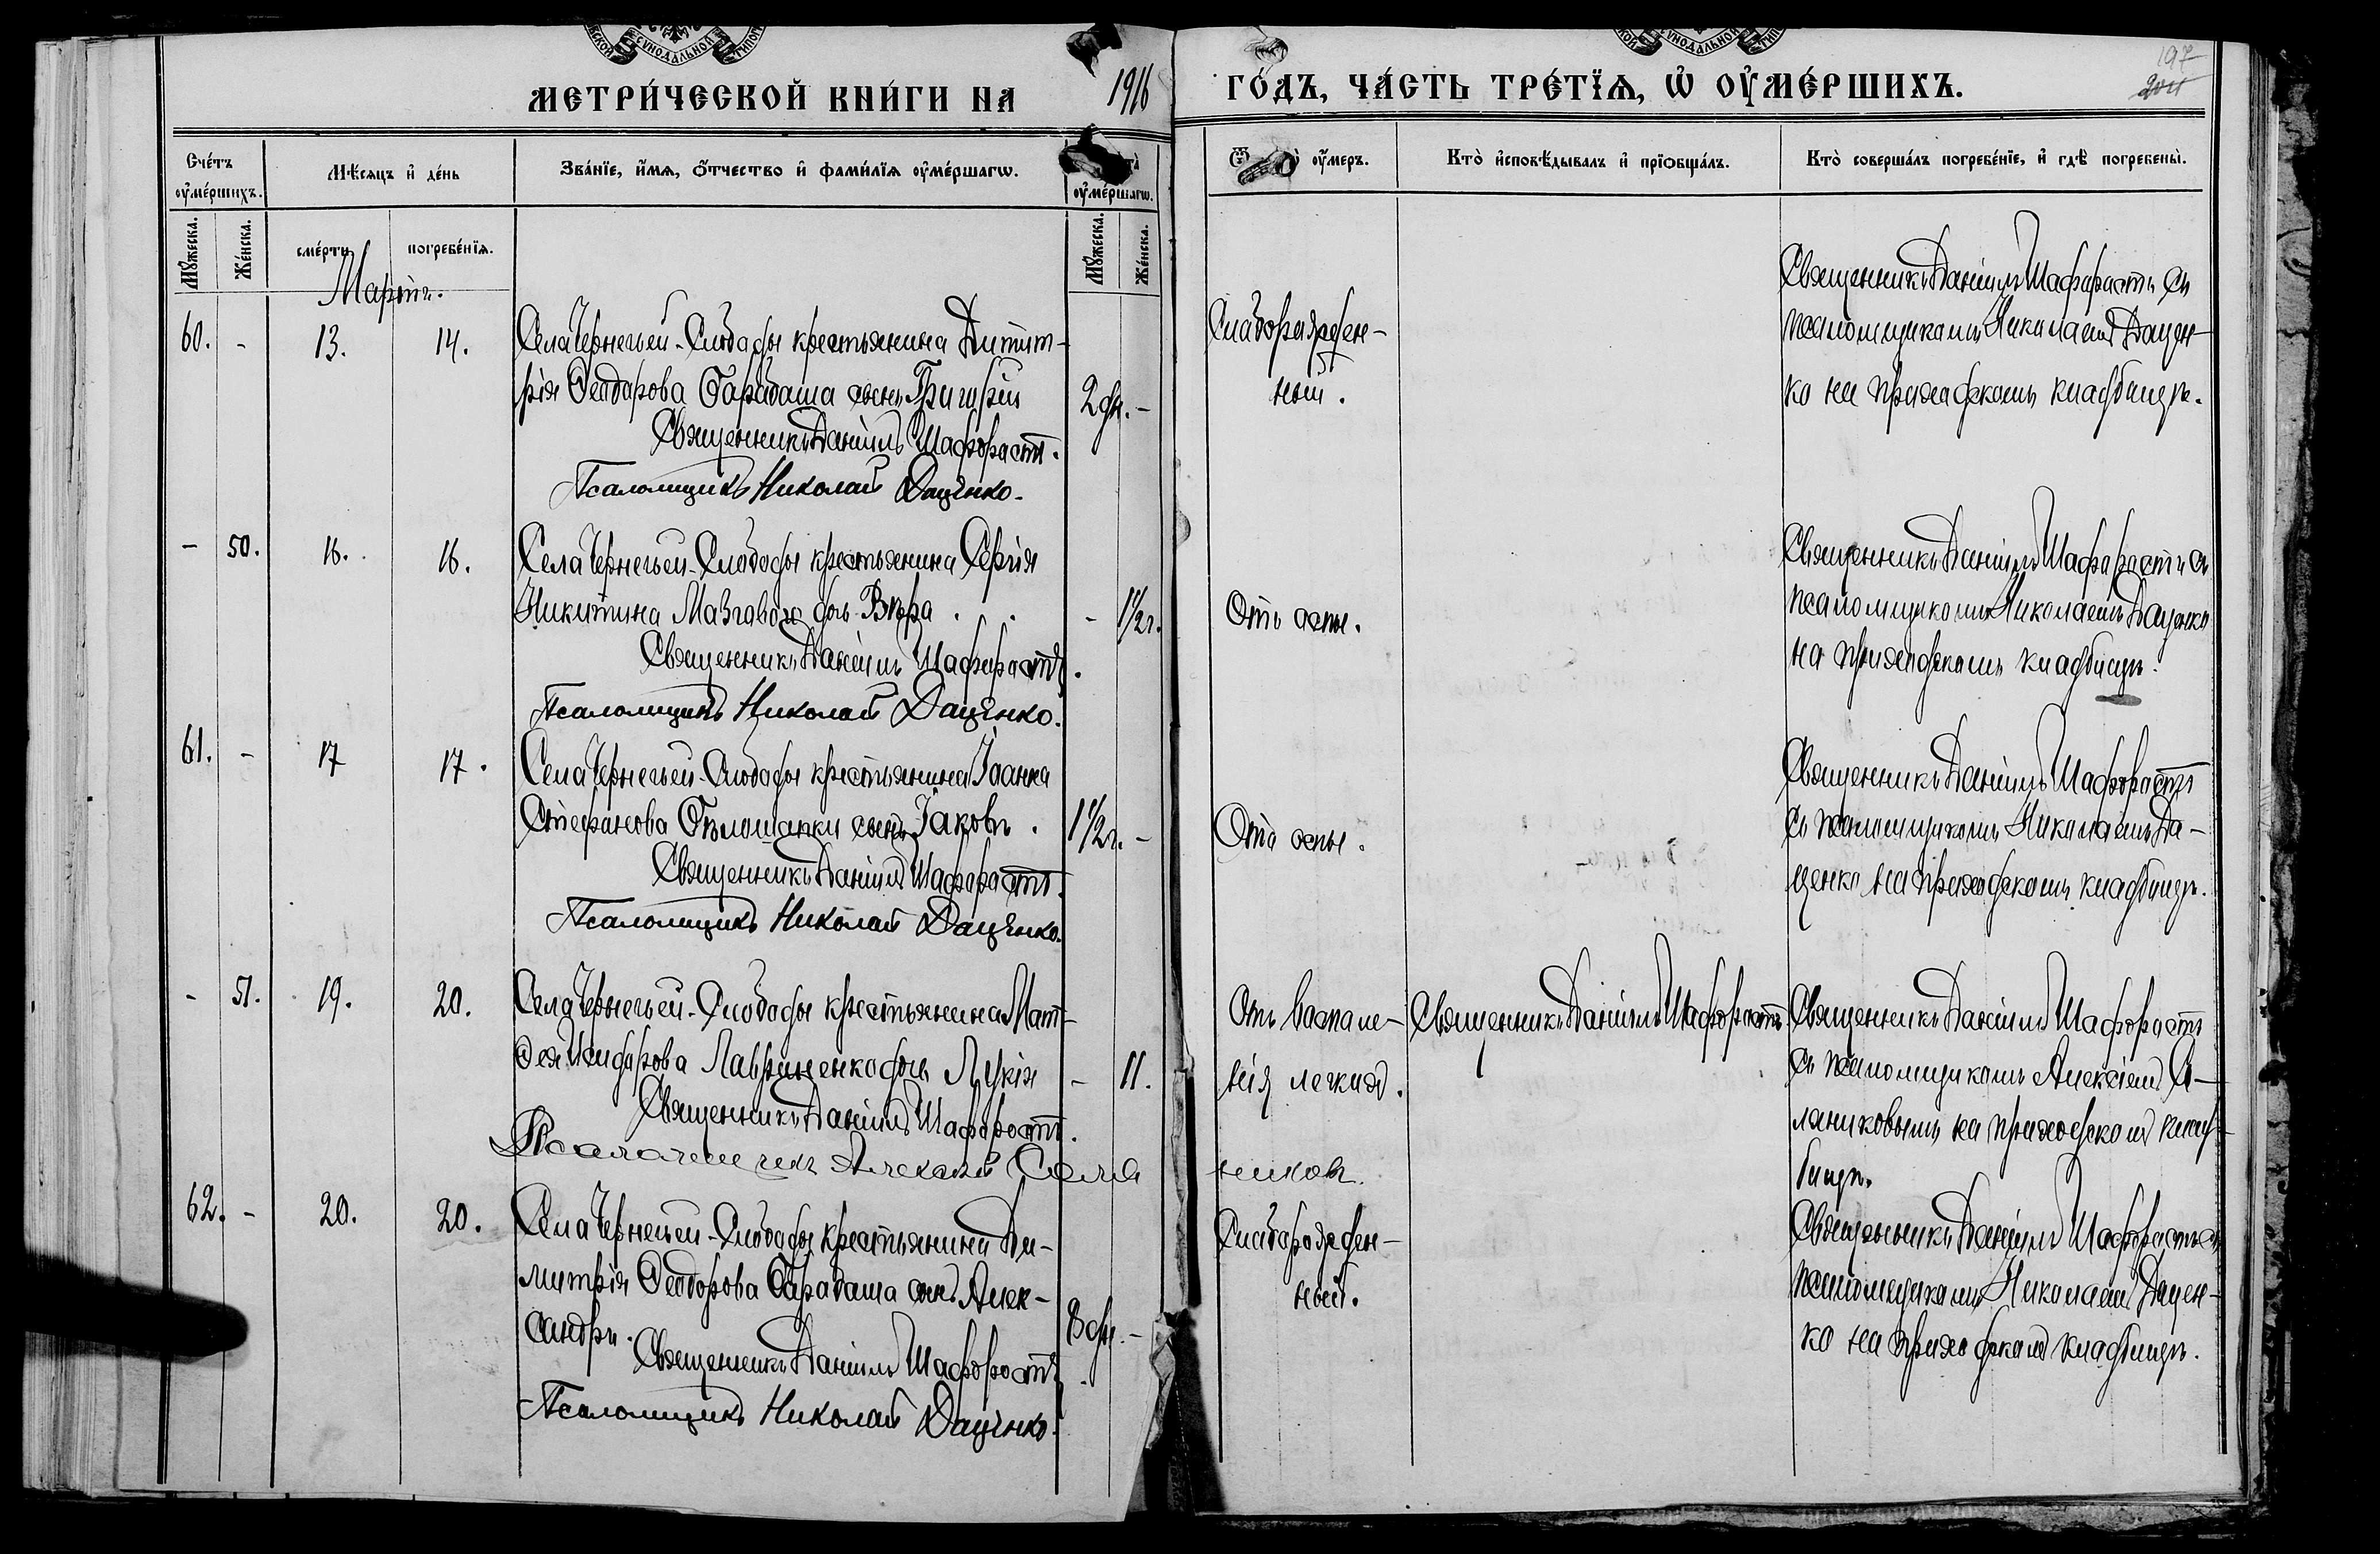 МЕТРИ́ЧЕСКОЙ КНИ́ГИ НА 1916 ГО́ДЪ, ЧА́СТЬ ТРЕ́ТЇѦ, Ѡ҆ ОУ҆МЕ́РШИХЪ.
197
Сче́тъ оу҆ме́ршихъ.
Мѣ́сяцъ и҆ де́нь
Зва́нїе, и҆́мѧ, ѻ҆́тчество и҆ фами́лїѧ оу҆ме́ршагѡ.
оу҆ме́ршагѡ.
оу҆́меръ.
Кто̀ и҆сповѣ́дывалъ и҆ прїѡбща́лъ.
Кто̀ соверша́лъ погребе́нїе, и҆ гдѣ̀ погребены̀.
Мꙋ́жеска.
Же́нска.
сме́рти
погребе́нїѧ.
Мꙋ́жеска.
Же́нска.
Мартъ.
60. - 13. 14.
Села Чернечьей-Слободы крестьянина Димит-
рія Ѳеодорова Барабаша сынъ Григорій
2 дн. -
Священникъ Даніилъ Шафорастъ.
Псаломщикъ Николай Даценко.
Слаборожден-
ный.
Священникъ Даніилъ Шафорастъ съ
псаломщикомъ Николаемъ Дацен-
ко на приходскомъ кладбищѣ.
- 50. 16. 16.
Села Чернечьей-Слободы крестьянина Сергія
Никитина дочь Вѣра
- 1 1/2 г.
Священникъ Даніилъ Шафорастъ.
Псаломщикъ Николай Даценко.
Отъ оспы.
Священникъ Даніилъ Шафорастъ съ
псаломщикомъ Николаемъ Даценко
на приходскомъ кладбищѣ.
61. - 17 17.
Села Чернечьей-Слободы крестьянина Іоанна
Стефанова Бѣлошапки сынъ Іаковъ.
1 1/2 г. -
Священникъ Даніилъ Шафорастъ.
Псаломщикъ Николай Даценко.
Отъ оспы.
Священникъ Даніилъ Шафорастъ
съ псаломщикомъ Николаемъ Да-
ценко на приходскомъ кладбищѣ.
- 51. 19. 20.
Села Чернечьей-Слободы крестьянина Мат-
ѳея Лавриненко дочь Лукія
- 11.
Священникъ Даніилъ Шафорастъ.
Псаломщикъ Алексѣй Соляниковъ.
Отъ воспале-
нія легкихъ.
Священникъ Даніилъ Шафорастъ.
Священникъ Даніилъ Шафорастъ
съ псаломщикомъ Алексіемъ Со-
ляниковымъ на приходскомъ клад-
бищѣ.
62. - 20. 20.
Села Чернечьей-Слободы крестьянина Ди-
митрія Ѳеодорова Барабаша сынъ Алек-
сандръ.
8 дн. -
Священникъ Даніилъ Шафорастъ.
Псаломщикъ Николай Даценко.
Слаборожден-
ный.
Священникъ Даніилъ Шафорастъ съ
псаломщикомъ Николаемъ Дацен-
ко на приходскомъ кладбищѣ.